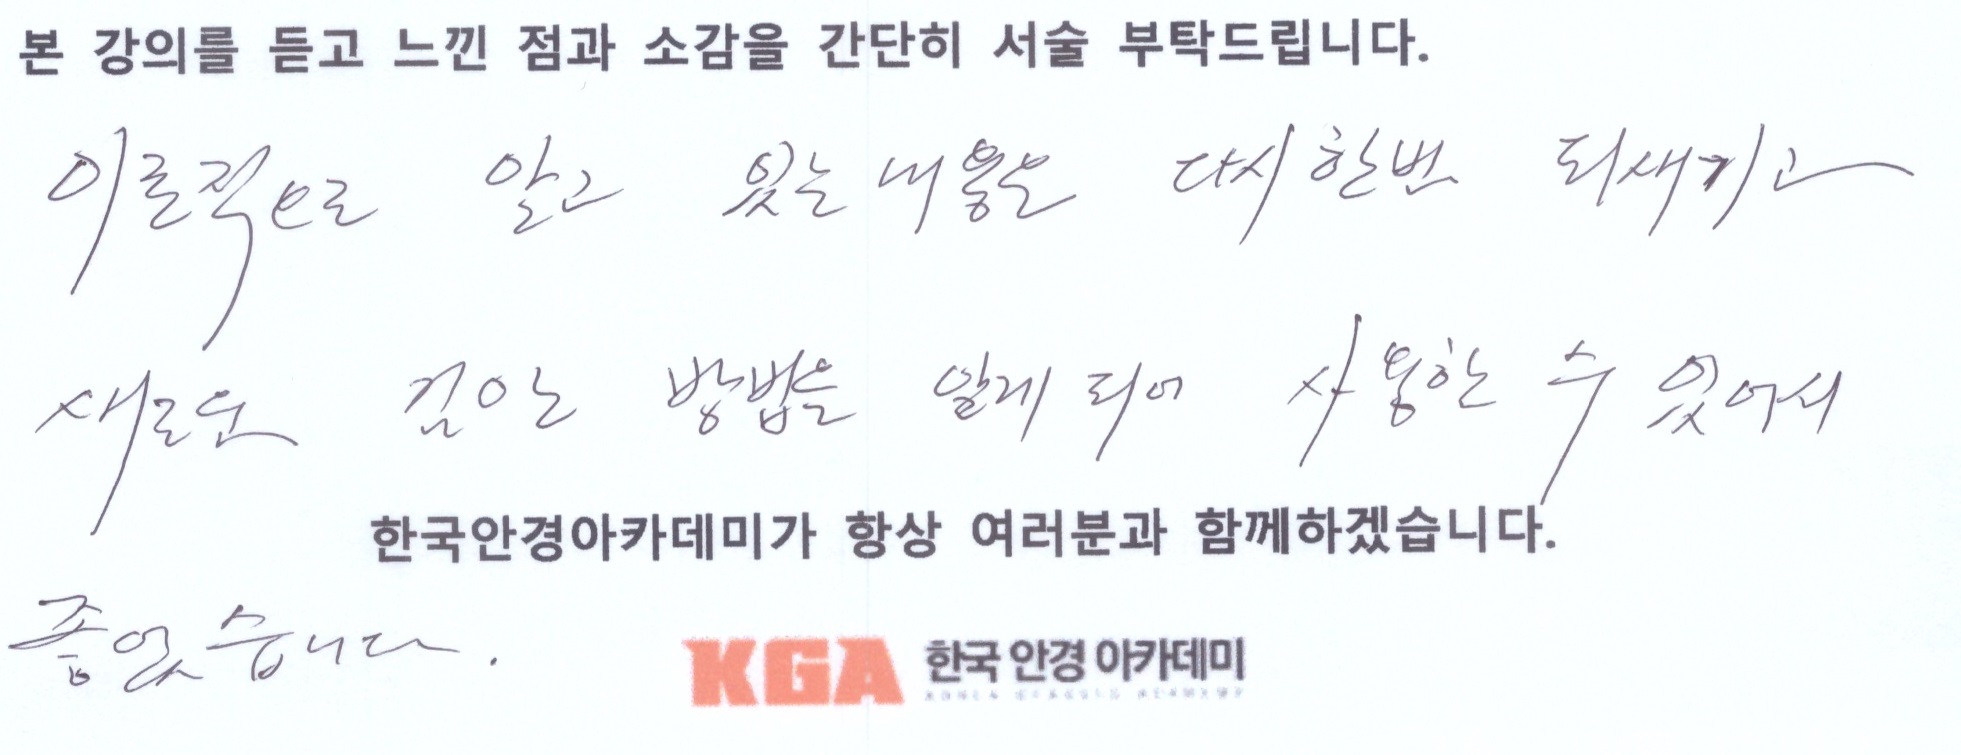 본 강의를 듣고 느낀 점과 소감을 간단히 서술 부탁드립니다.
이론적으로 알고 있는 내용을 다시 한번 되새기고
새로운 검안 방법을 알게 되어 사용할 수 있어서
한국안경아카데미가 항상 여러분과 함께하겠습니다.
좋았습니다.
KGA 한국 안경 아카데미